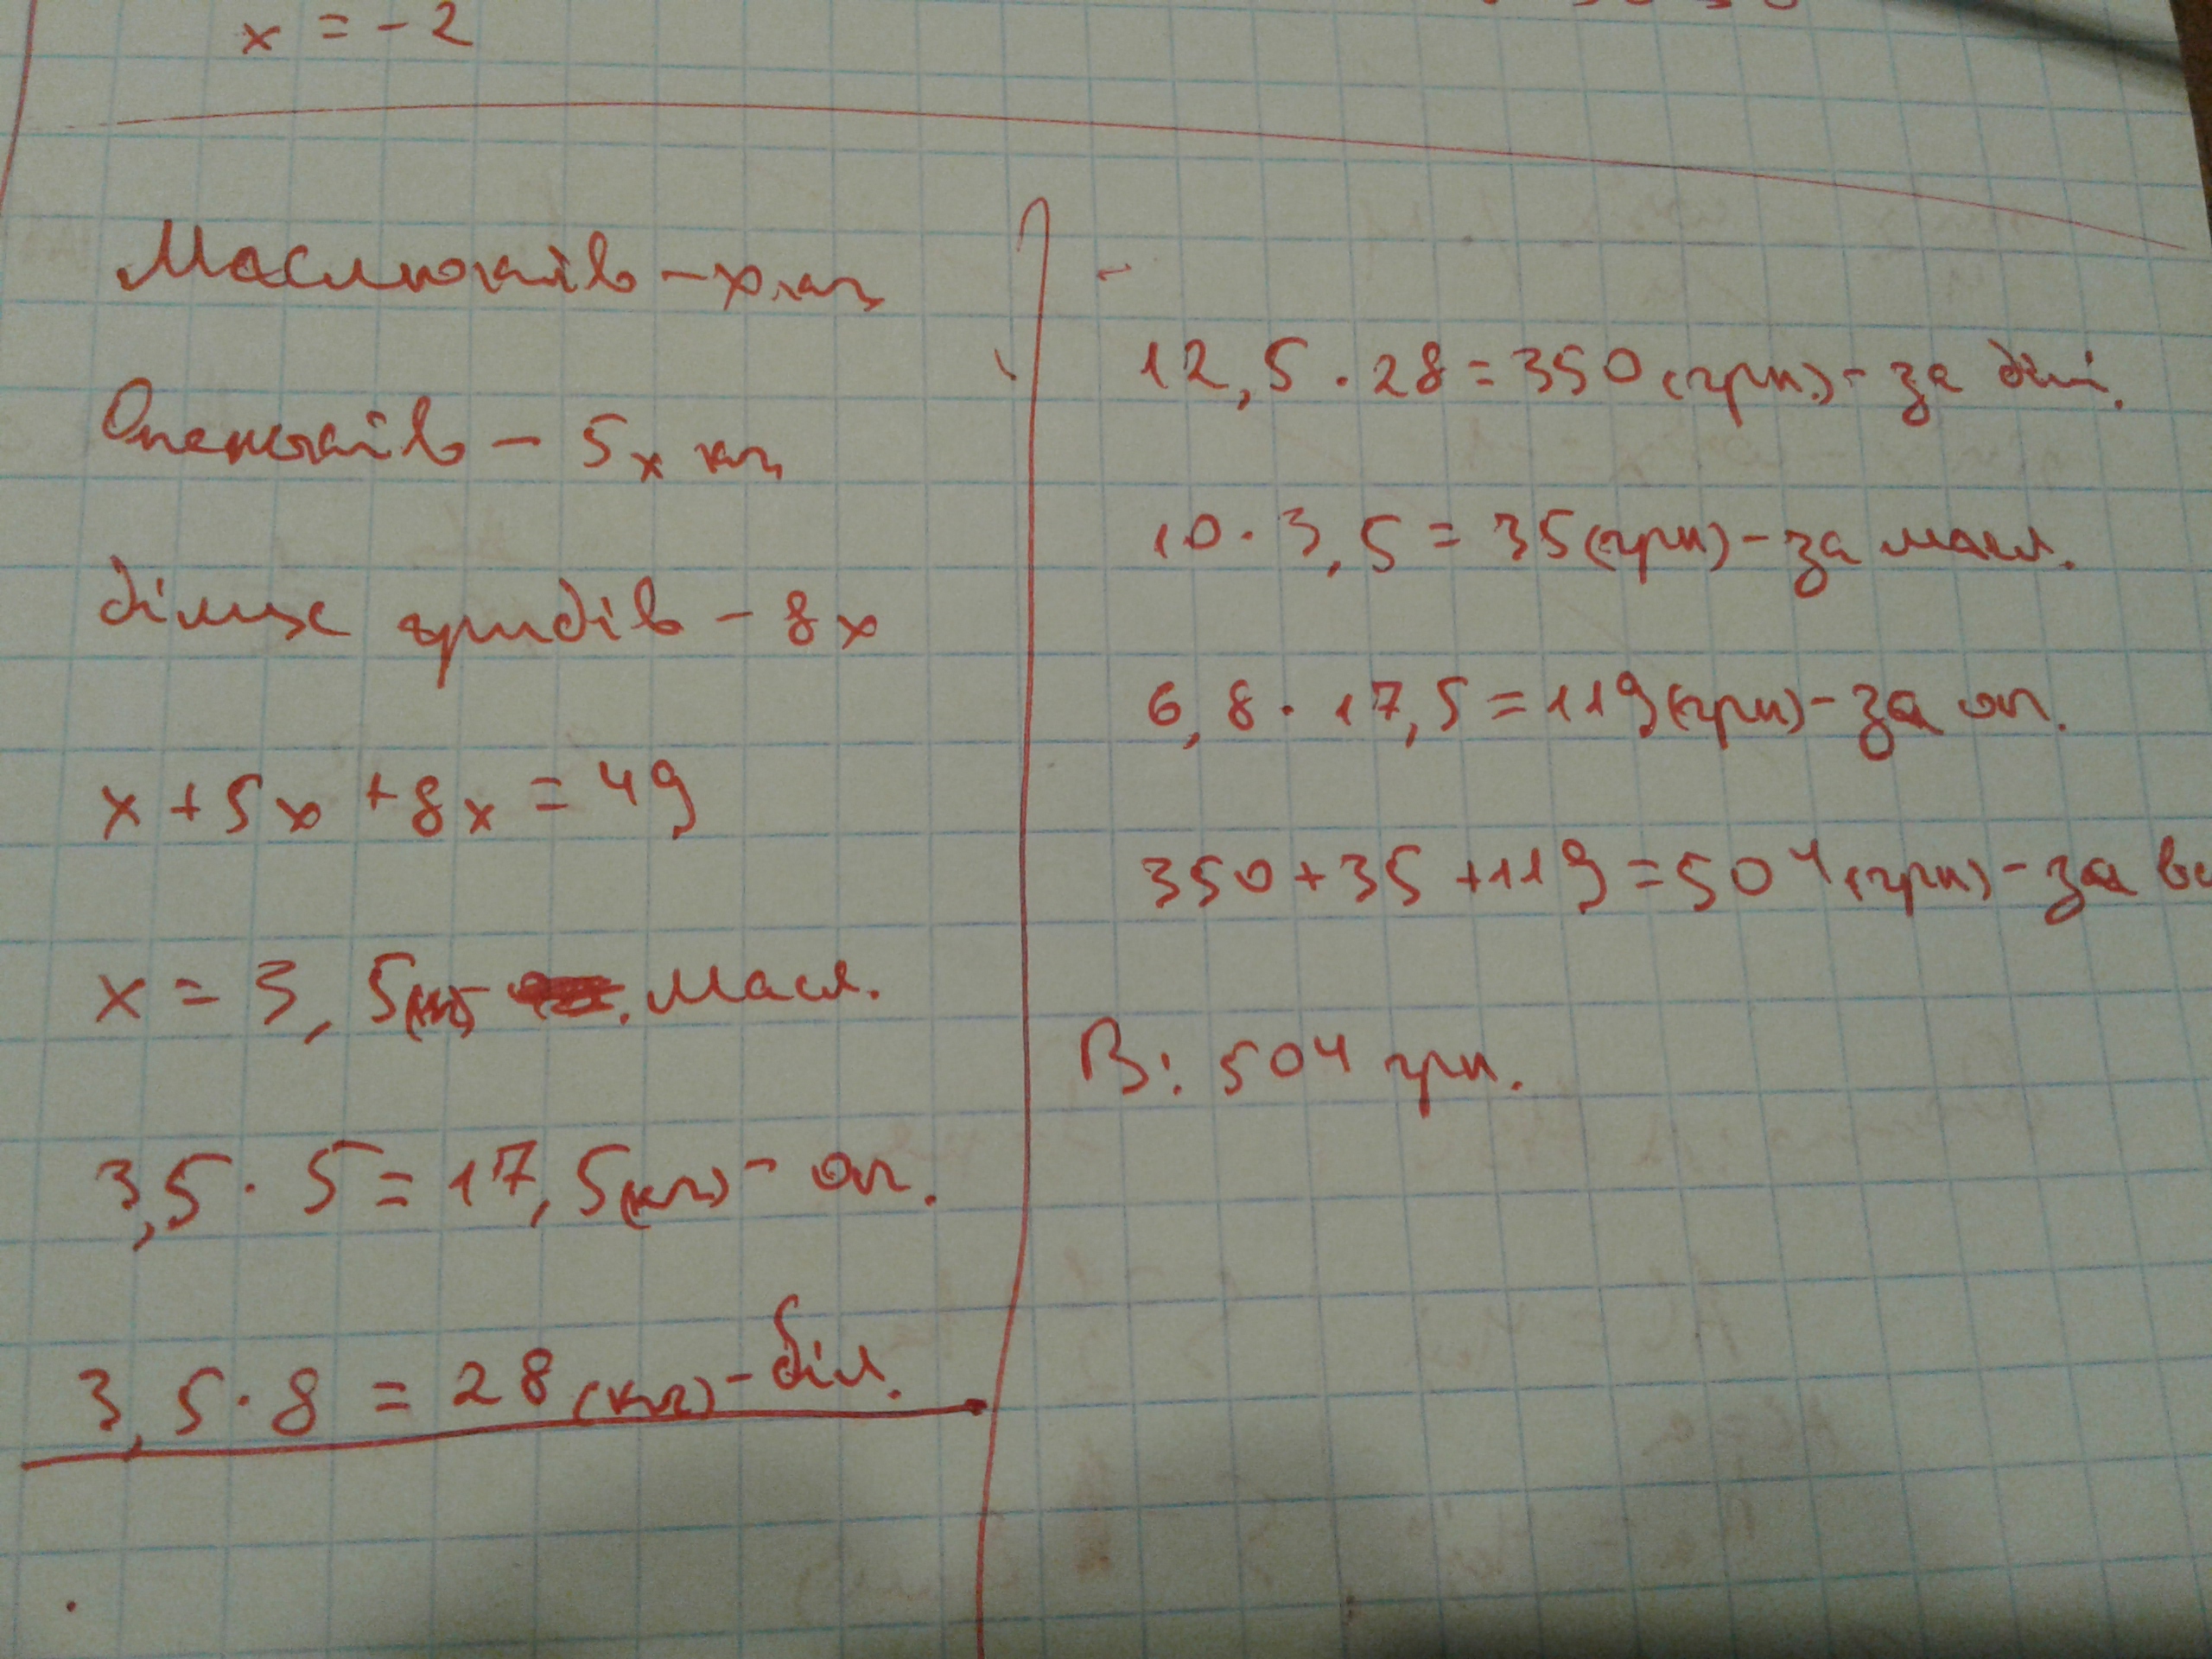 x = -2
Маслюків - x кг
Опеньків - 5x кг
білих грибів - 8x
x + 5x + 8x = 49
x = 3,5(кг) - масл.
3,5 · 5 = 17,5(кг) - оп.
3,5 · 8 = 28(кг) - біл.
12,5 · 28 = 350(грн.) - за білі.
10 · 3,5 = 35(грн) - за масл.
6,8 · 17,5 = 119(грн) - за оп.
350 + 35 + 119 = 504(грн) - за вс
В: 504 грн.